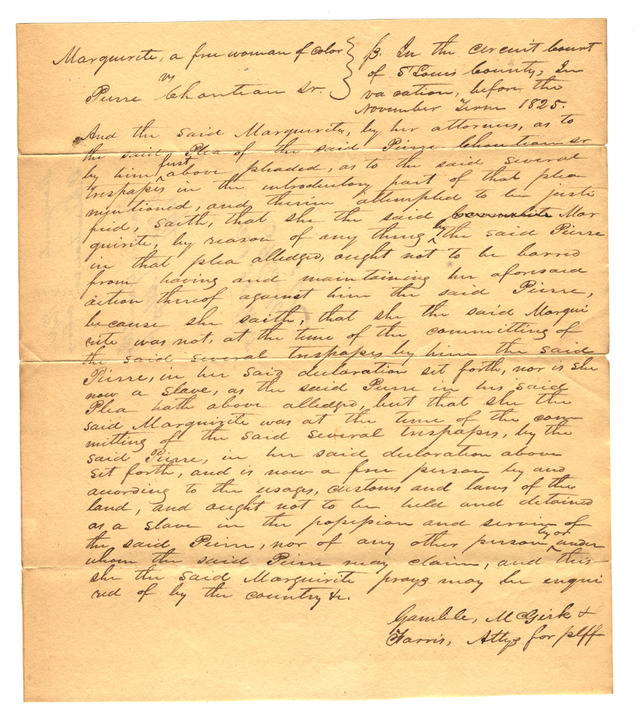 Marguirite, a free woman of color } ss. In the circuit Court
vs
of St Louis County, In
Pierre Chouteau Sr.
vacation, before the
November Term 1825.
And the said Marguirite, by her attornies, as to
the said Plea of the said Pierre Chouteau Sr
by him first above pleaded, as to the said several
trespasses in the introductory part of that plea
mentioned, and therein attempted to be justi
fied, saith, that she the said Mar
guirite, by reason of any thing by the said Pierre
in that plea alledged, ought not to be barred
from having and maintaining her aforesaid
action thereof against him the said Pierre,
because she saith, that she the said Margui
rite was not, at the time of the committing of
the said several trespasses by him the said
Pierre, in her said declaration set forth, nor is she
now a slave, as the said Pierre in his said
Plea hath above alledged, but that she the
said Marguirite was at the time of the com
mitting of the said several trespasses, by the
said Pierre, in her said declaration above
set forth, and is now a free person by and
acording to the usages, customs and laws of the
land, and ought not to be held and detained
as a slave in the possession and service of
the said Pierre, nor of any other person by or under
whom the said Pierre may claim, and this
she the said Marguirite prays may be enqui
red of by the country &c.
Gamble, McGirk &
Farris, Attys for plff